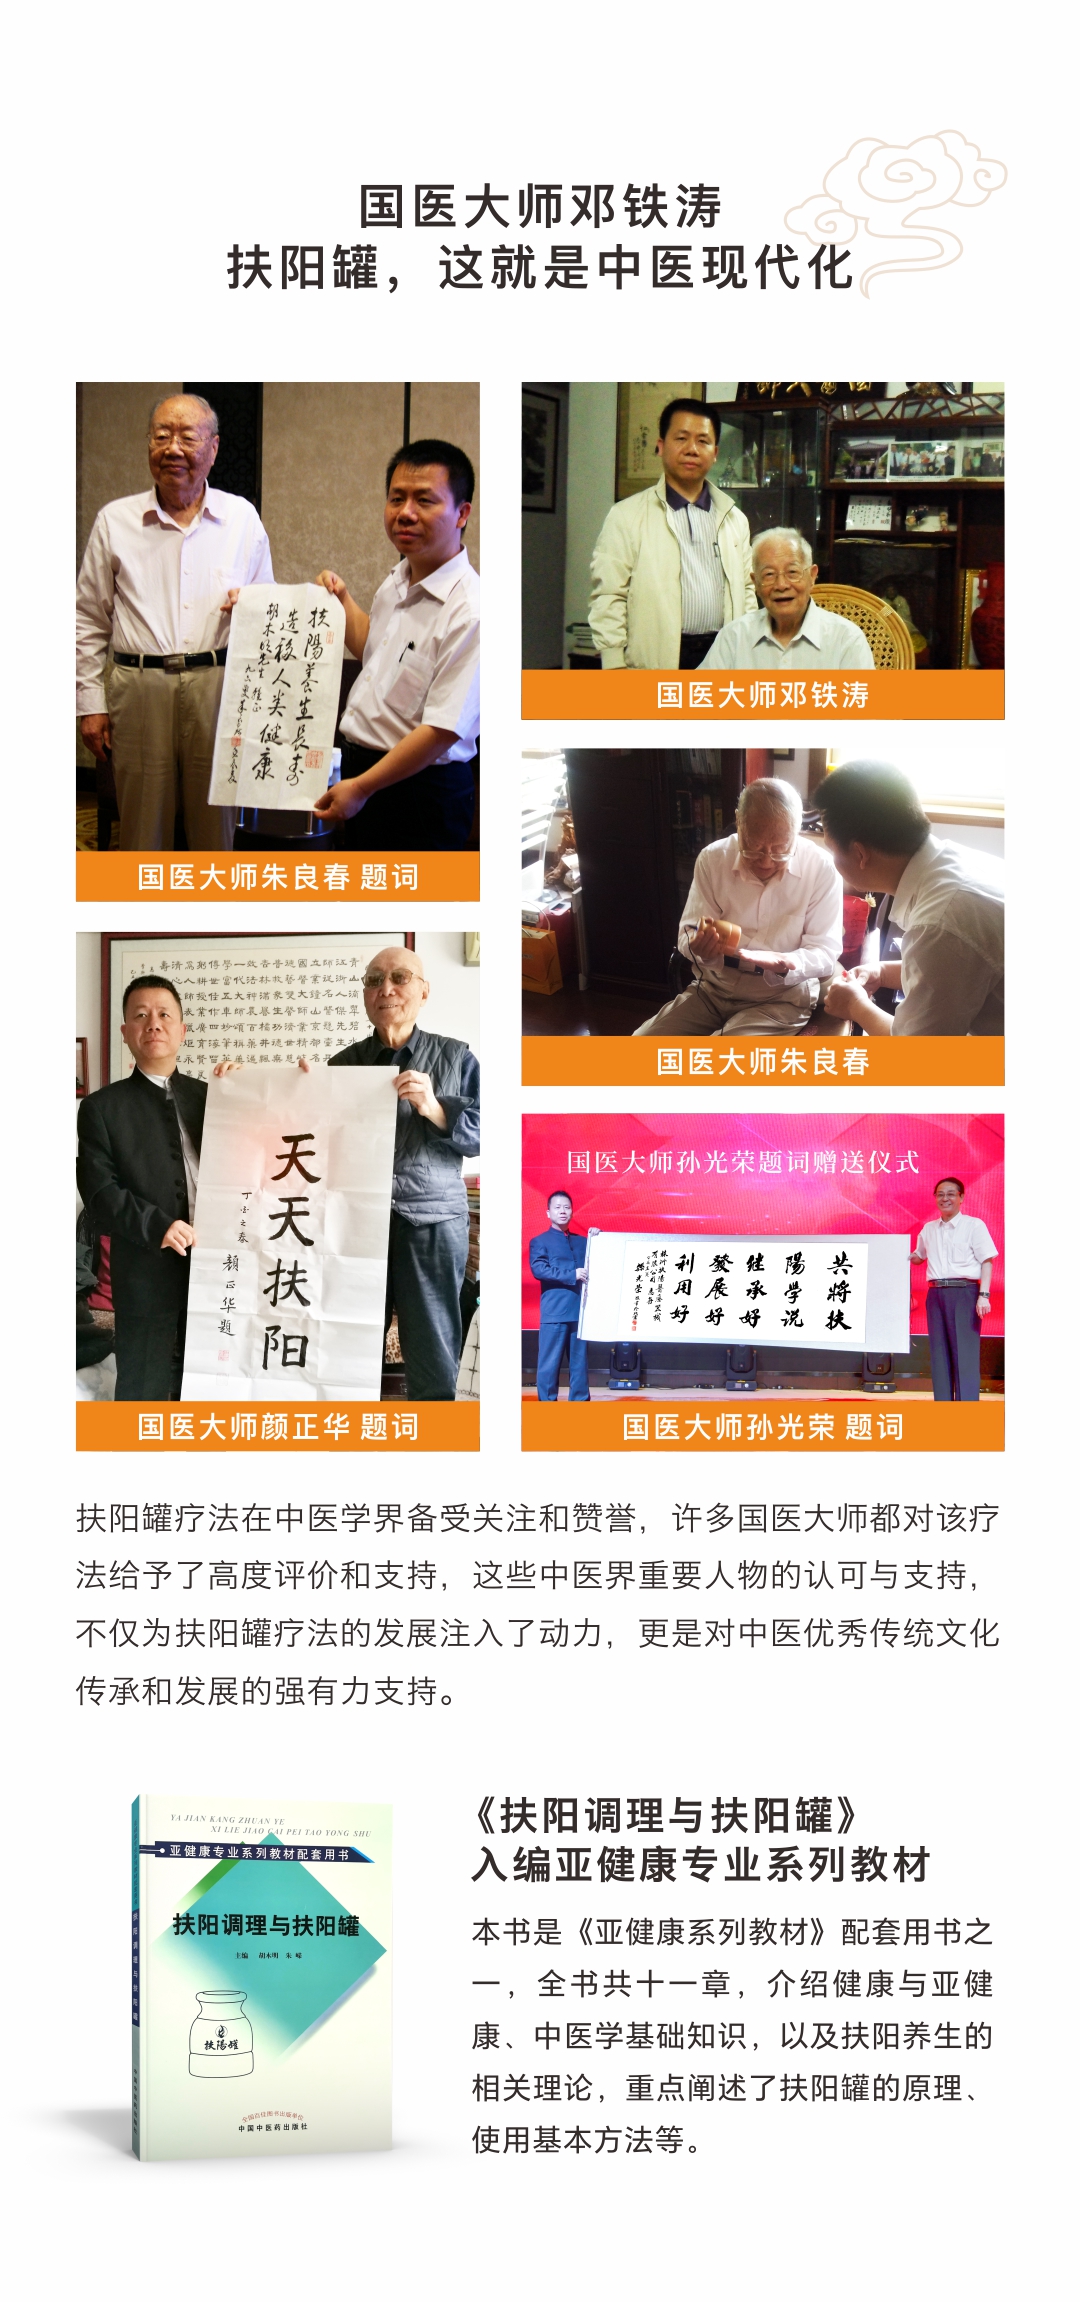 国医大师邓铁涛
扶阳罐，这就是中医现代化
扶陽養生長寿
造福人类健康
国医大师朱良春 题词
国医大师邓铁涛
国医大师朱良春
天天扶阳
丁酉之春
颜正华题
国医大师颜正华 题词
国医大师孙光荣题词赠送仪式
共将扶
陽学说
继承好
發展好
利用好
国医大师孙光荣 题词
扶阳罐疗法在中医学界备受关注和赞誉，许多国医大师都对该疗
法给予了高度评价和支持，这些中医界重要人物的认可与支持，
不仅为扶阳罐疗法的发展注入了动力，更是对中医优秀传统文化
传承和发展的强有力支持。
YA JIAN KANG ZHUAN YE
XI LIE JIAO CAI PEI TAO YONG SHU
亚健康专业系列教材配套用书
扶阳调理与扶阳罐
主编 胡木明 朱嵘
扶陽罐
扶阳调理与扶阳罐
全国百佳图书出版单位
中国中医药出版社
《扶阳调理与扶阳罐》
入编亚健康专业系列教材
本书是《亚健康系列教材》配套用书之
一，全书共十一章，介绍健康与亚健
康、中医学基础知识，以及扶阳养生的
相关理论，重点阐述了扶阳罐的原理、
使用基本方法等。